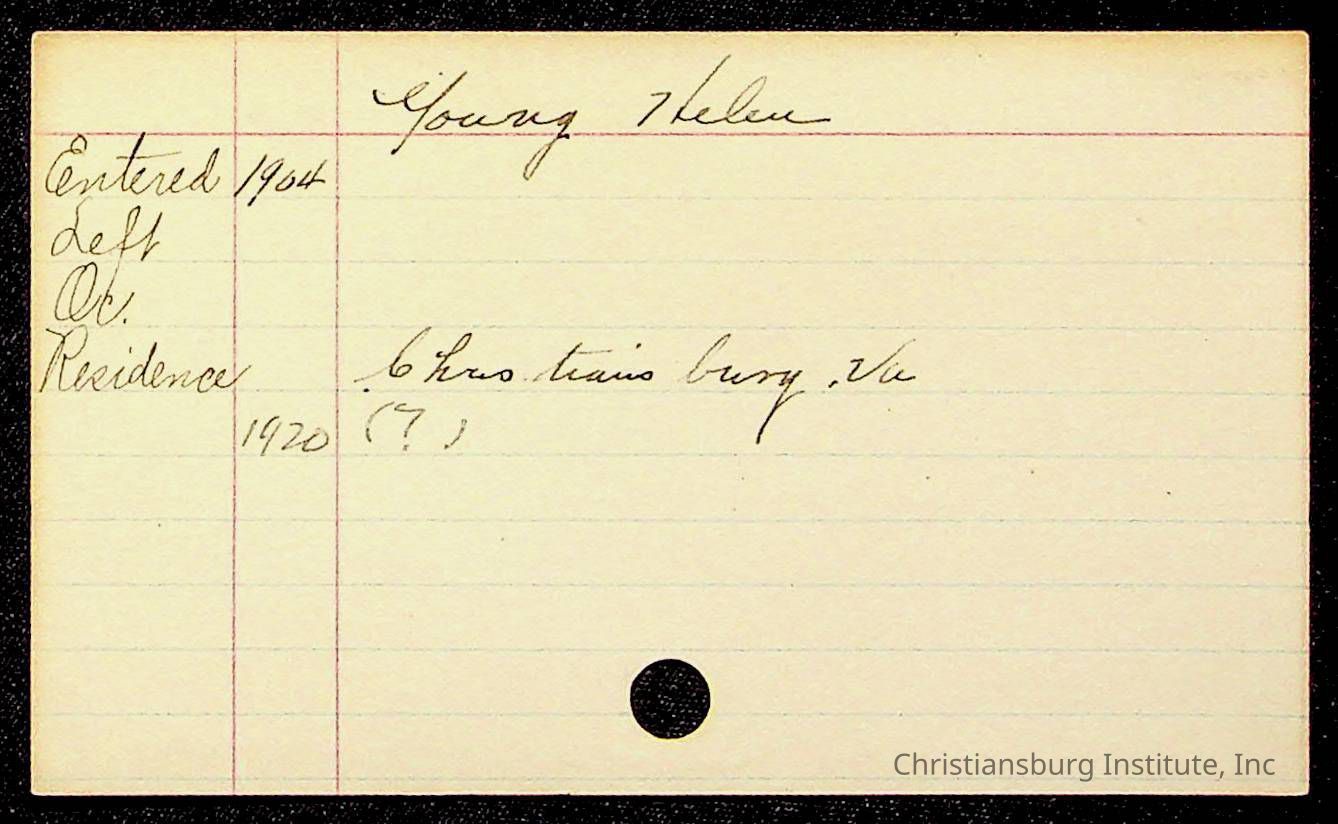 Young Helen
Entered 1904
Left
Oc.
Residence Christiansburg, Va
1920 (?)
Christiansburg Institute, Inc